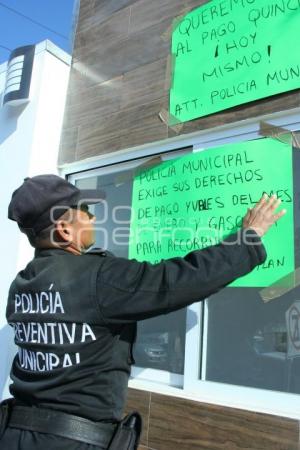 QUEREMO
AL PAGO QUINC
¡HOY
MISMO!
ATT. POLICÍA MUNI
POLICIA MUNICIPAL
EXIGE SUS DERECHOS
DE PAGO
DEL MES
ENERO Y GASO
PARA
POLICÍA
PREVENTIVA
MUNICIPAL